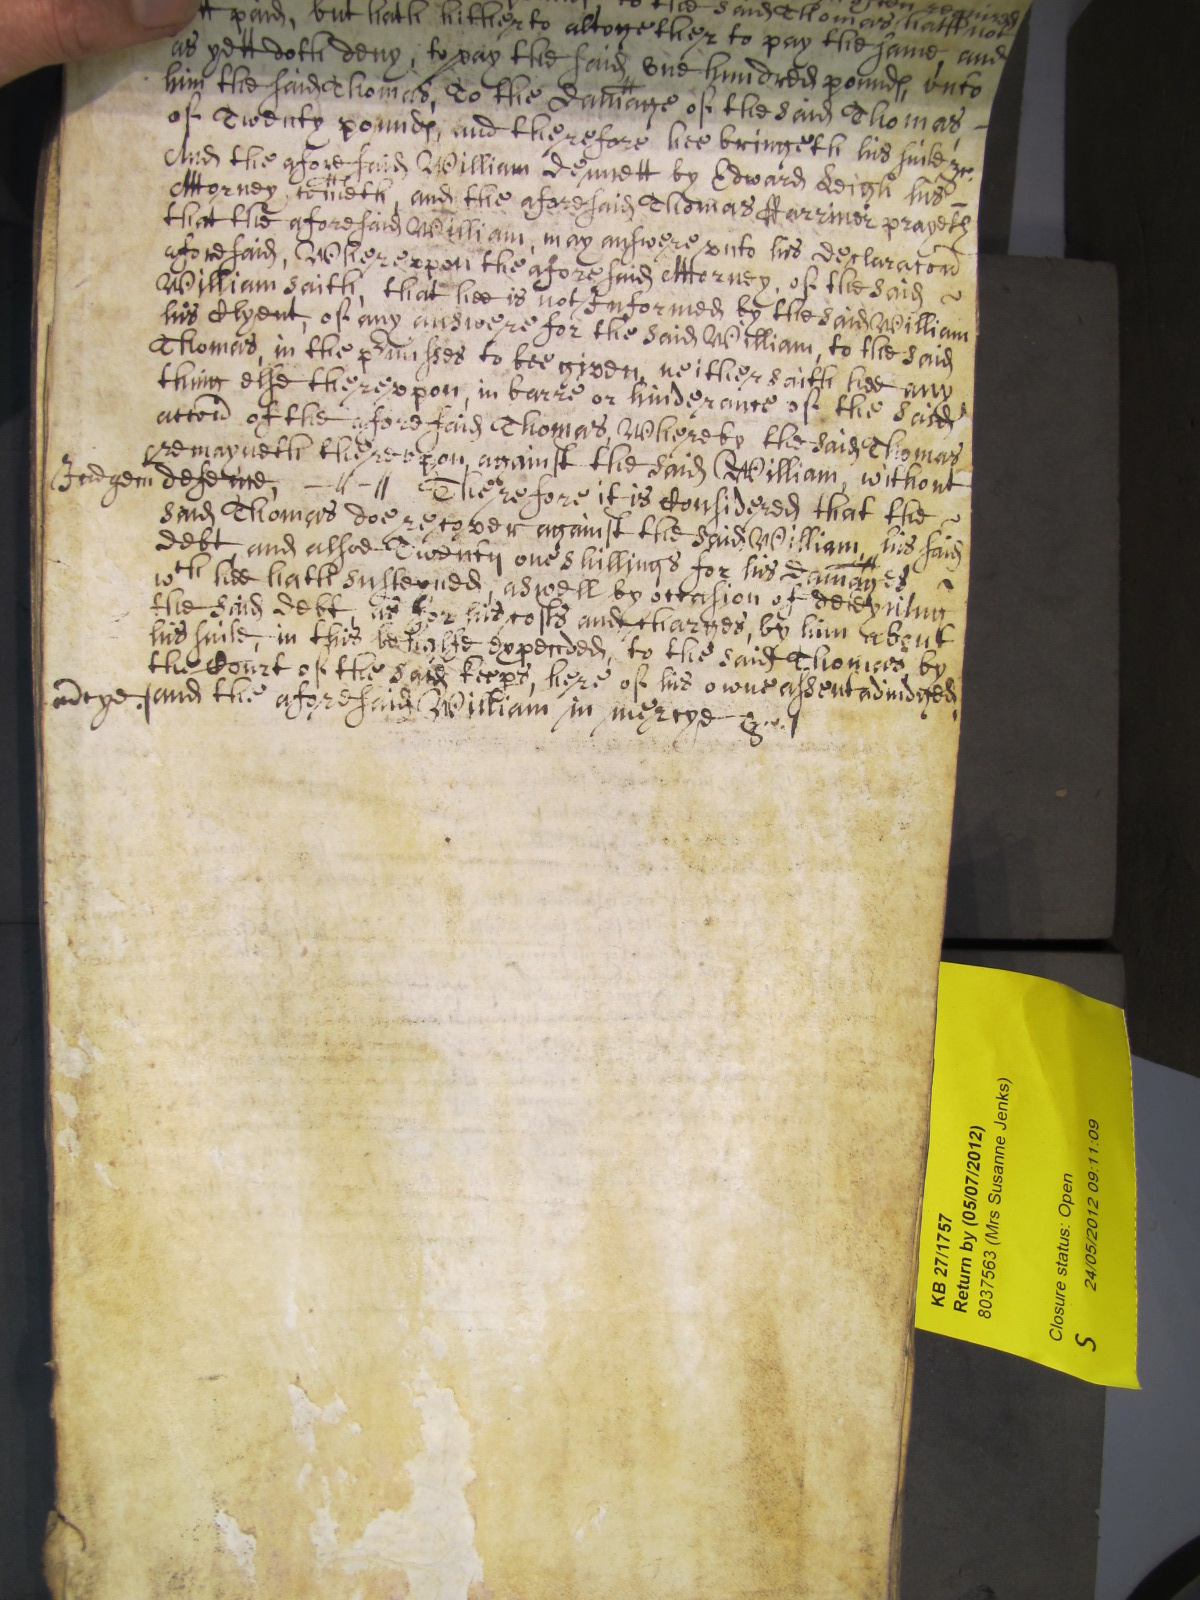 to the said Thomas hath not
paid, but hath hitherto altogether to pay the same, and
as yett doth deny, to pay the said, one hundred pounds, vnto
him the said Thomas, To the damage of the said Thomas
of Twenty pounds, and therefore hee bringeth his suite &c.
And the aforesaid William Dennett by Edward Leigh his
Attorney, cometh, and the aforesaid Thomas Farriner prayeth
that the aforesaid William, may answere vnto his declaracon
aforesaid, Wherevpon the aforesaid Attorney, of the said
William saith, that hee is not Informed by the said William
his Clyent, of any answere for the said William, to the said
Thomas, in the p'misses to bee given, neither saith hee any
thing else therevpon, in barre or hinderance of the said
accon of the aforesaid Thomas, Whereby the said Thomas
remayneth therevpon against the said William, without
Judgem defence, Therefore it is Considered that the
said Thomas doe recover against the said William, his said
debt, and alsoe Twenty one shillings for his damages
wch hee hath susteyned, aswell by occasion of deteyning
the said debt, as for his costs and charges, by him about
his suite, in this behalfe expended, to the said Thomas by
the Court of the said Keeps, here of his owne assent adiudged,
mcye. and the aforesaid William in mercye &c.
KB 27/1757
Return by (05/07/2012)
8037563 (Mrs Susanne Jenks)
Closure status: Open
S 24/05/2012 09:11:09